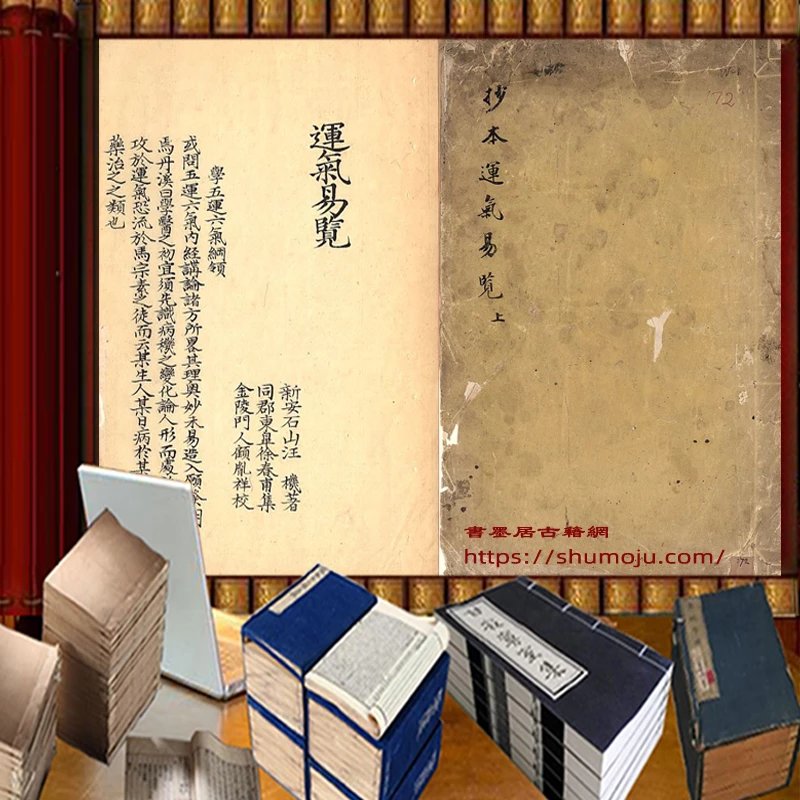 抄本運氣易覧 上
運氣易覽
新安石山汪 機著
同郡東皐徐春甫集
金陵門人顧胤祥校
學五運六氣綱領
或問五運六氣内經講論諸方所畧其理奥妙未易造入願
焉丹溪曰學醫之初宜須先識病機之變化論人形而處
攻於運氣恐流於馬宗素之徒而云某生人某日病於某
藥治之之類也
書墨居古籍網
https://shumoju.com/